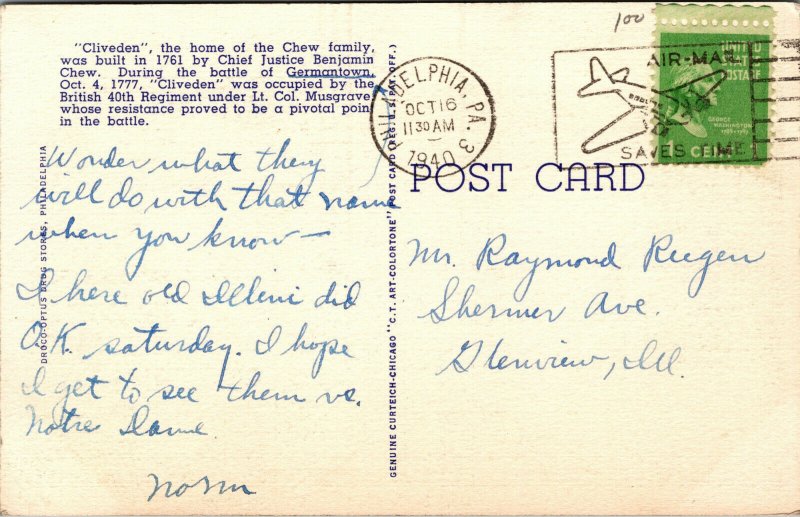 100
"Cliveden", the home of the Chew family,
was built in 1761 by Chief Justice Benjamin
Chew. During the battle of Germantown,
Oct. 4, 1777, "Cliveden" was occupied by the
British 40th Regiment under Lt. Col. Musgrave
whose resistance proved to be a pivotal point
in the battle.
PHILADELPHIA, PA. 3
OCT 16
11 30 AM
1940
AIR-MAIL
SAVES TIME
UNITED
STATES
POSTAGE
GEORGE
WASHINGTON
CENT
POST CARD
Wonder what they
will do with that name
when you know—
I here old Illini did
O.K. saturday. I hope
I get to see them vs.
Notre Dame
Norm
Mr. Raymond Rugen
Shermer Ave.
Glenview, Ill.
DROCO-OPTUS DRUG STORES, PHILADELPHIA
GENUINE CURTEICH-CHICAGO "C. T. ART-COLORTONE" POST CARD (REG. U. S. PAT. OFF.)